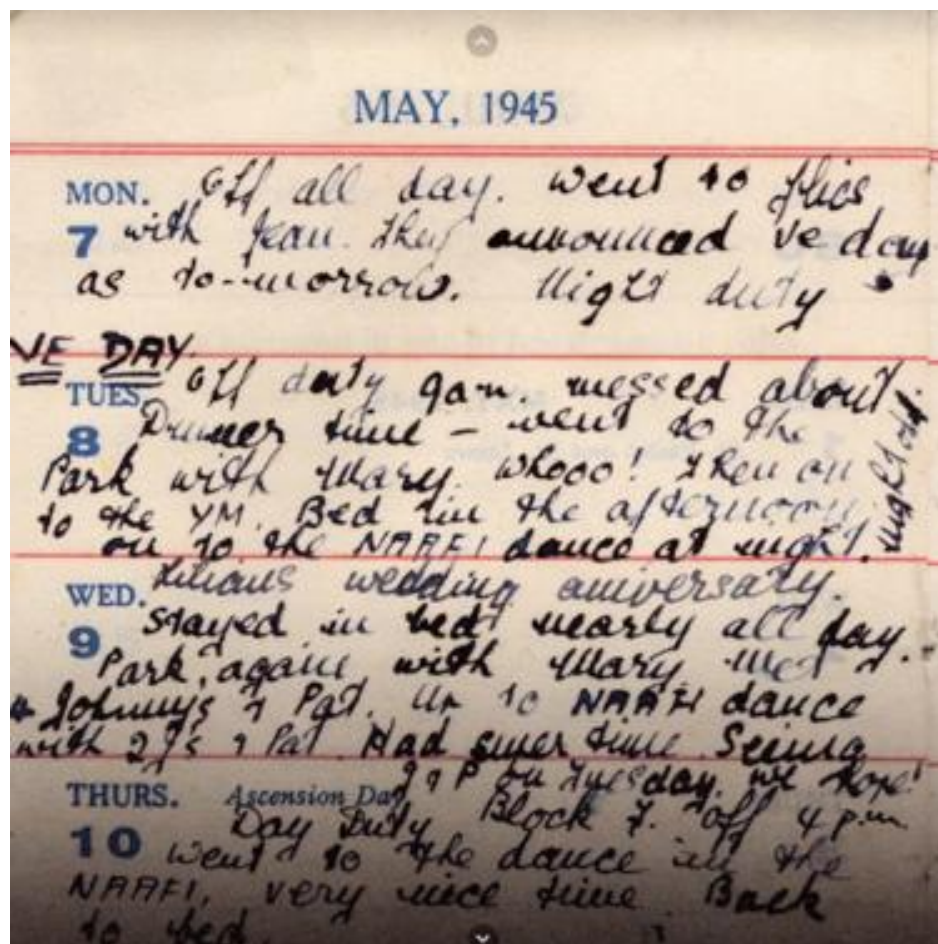 MAY, 1945
MON. Off all day. Went to flics
7 with Jean. They announced VE day
as to-morrow. Night duty
VE DAY.
TUES. Off duty 9am. messed about
8 Dinner time - went to the
Park with Mary. Whooo! Then on
to the YM. Bed in the afternoon
on to the NAAFI dance at night.
night off.
WED. Lilians wedding aniversary.
9 stayed in bed nearly all day.
Park, again with Mary met
2 Johnnys & Pat. Up to NAAFI dance
with 2J's & Pat. Had super time. Seeing
J & P on Tuesday, we hope!
THURS. Ascension Day
Day Duty Block 7. off 4 p.m.
10 went to the dance in the
NAAFI, very nice time. Back
to bed.